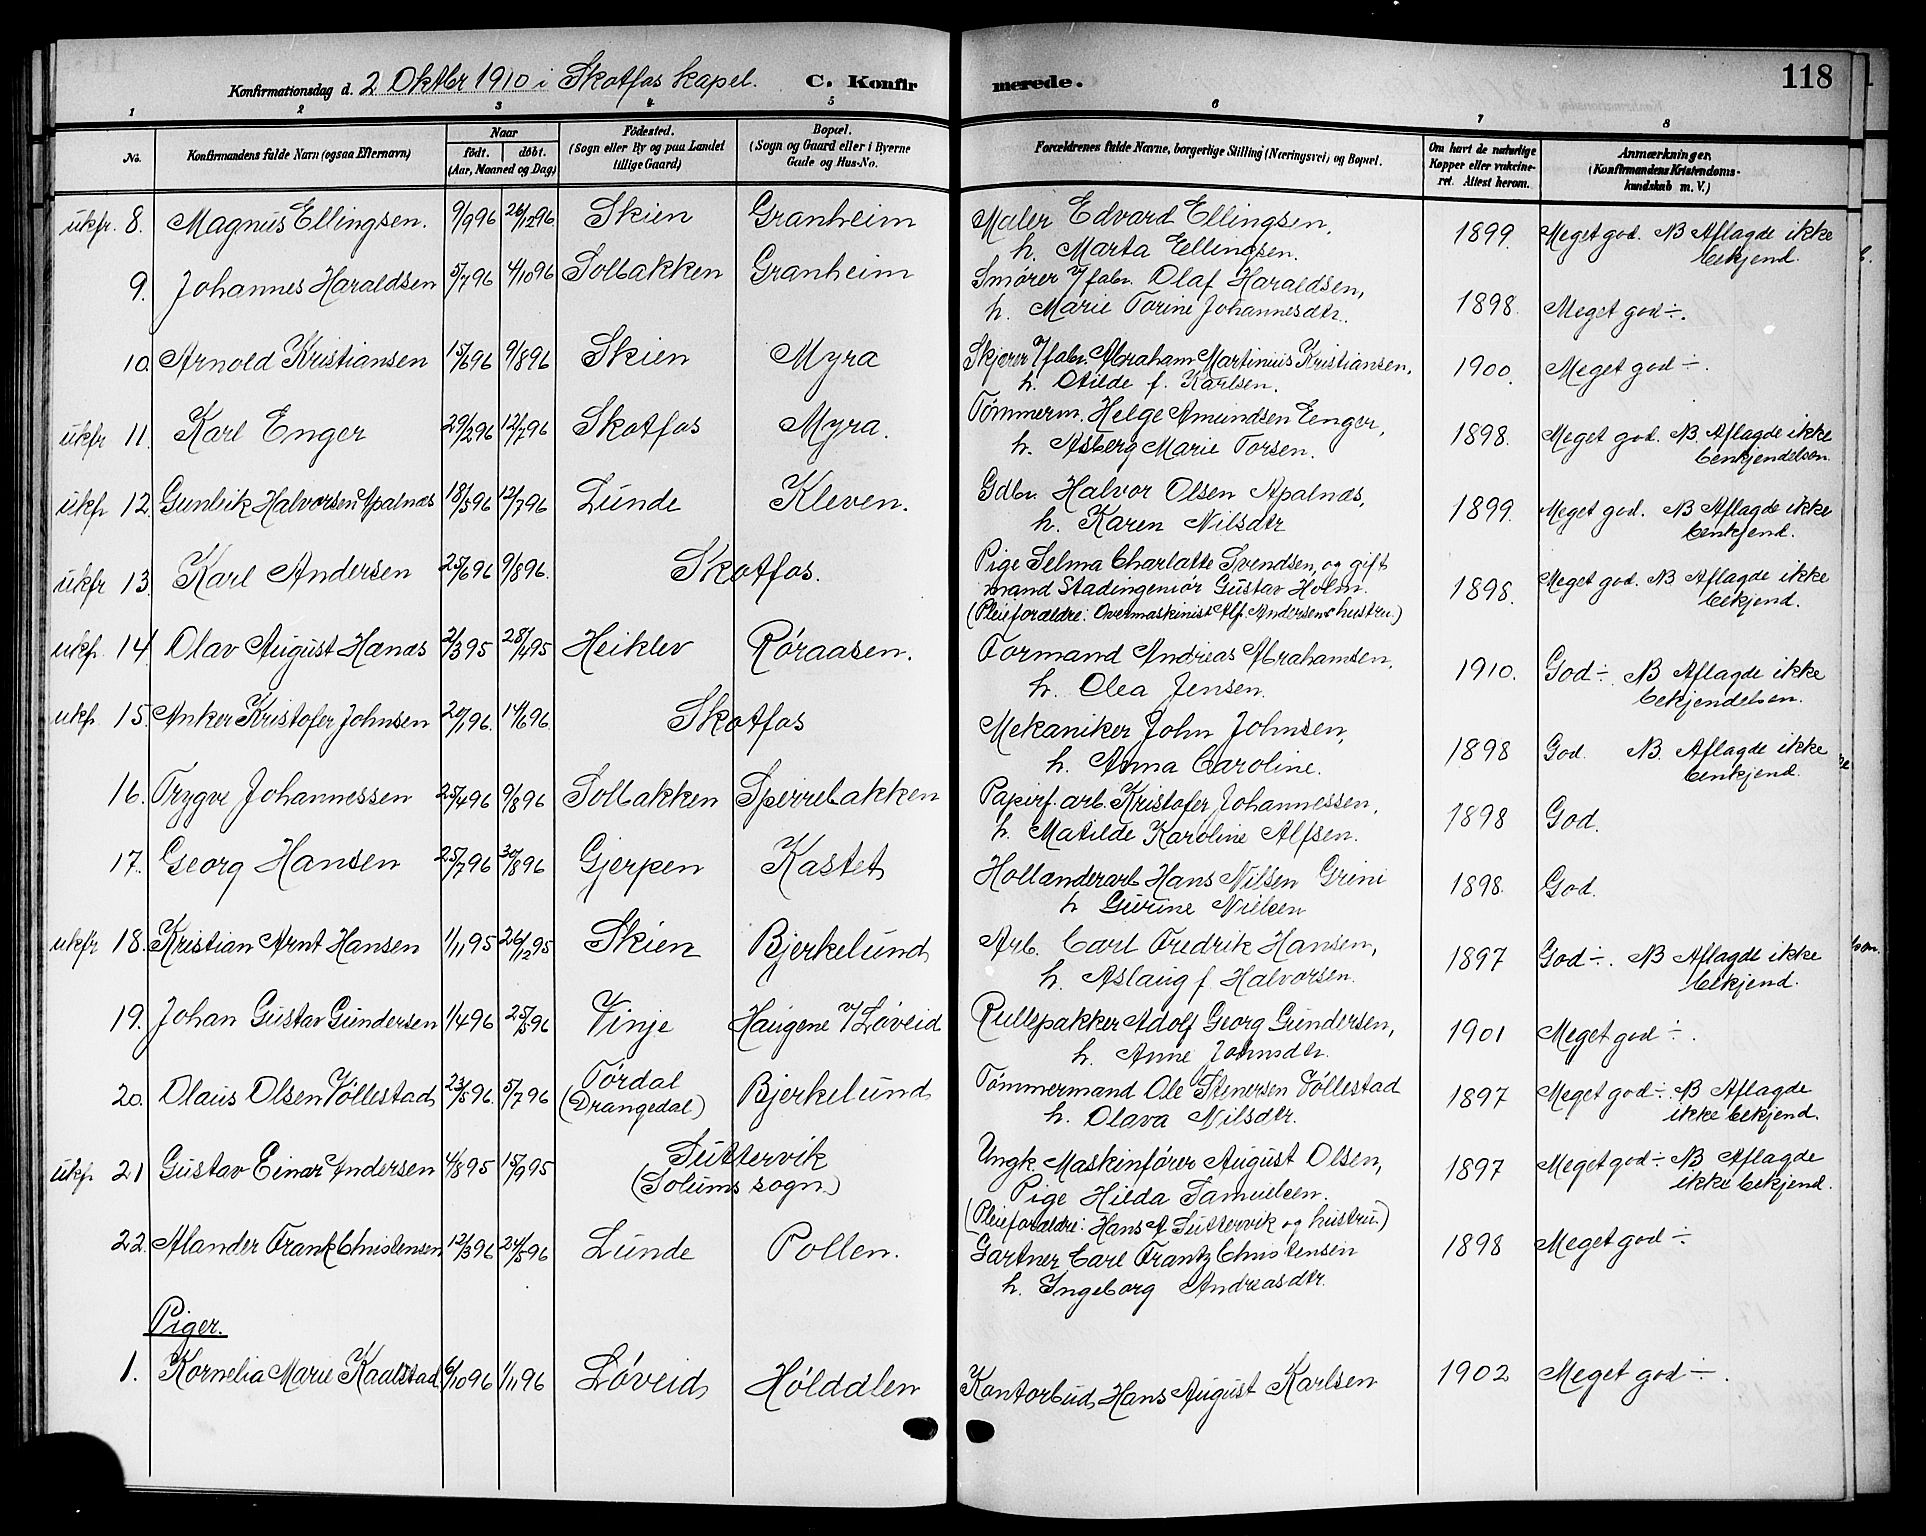 118
Konfirmationsdag d. 2 Oktbr 1910 i Skotfos kapel. C. Konfirmerede.
1 2 3 4 5 6 7 8
No. Konfirmandens fulde Navn (ogsaa Efternavn) Naar født. døbt. (Aar, Maaned og Dag) Fødested. (Sogn eller By og paa Landet tillige Gaard) Bopæl. (Sogn og Gaard eller i Byerne Gade og Hus-No. Forældrenes fulde Navne, borgerlige Stilling (Næringsvei) og Bopæl. Om havt de naturlige Kopper eller vakcineret. Attest herom. Anmærkninger. (Konfirmandens Kristendomskundskab m. V.)
ukfr. 8. Magnus Ellingsen. 9/9 96 26/12 96 Skien Granheim Maler Edvard Ellingsen, 1899. Meget god. NB Aflagde ikke
h. Marta Ellingsen. bekjend.
9. Johannes Haraldsen 5/7 96 4/10 96 Solbakken Granheim Smører v/ fabr. Olaf Haraldsen,
h. Marie Torine Johannesdtr. 1898. Meget god ÷.
10. Arnold Kristiansen 15/6 96 9/8 96 Skien Myra Skjærer v/ fabr. Abraham Martinius Kristiansen, 1900. Meget god ÷.
h. Otilde f. Karlsen.
ukfr 11. Karl Enger 29/2 96 12/7 96 Skotfos Myra. Tømmerm. Helge Amundsen Eenger, 1898. Meget god. NB. Aflagde ikke
h. Asberg Marie Torsen. benkjendelsen.
ukfr 12. Gunleik Halvorsen Apalnæs 18/5 96 12/7 96 Lunde Kleven. Gdbr. Halvor Olsen Apalnæs, 1899. Meget god. NB Aflagde ikke
h. Karen Nilsdtr benkjend.
ukfr 13. Karl Andersen 25/6 96 9/8 96. Skotfos. Pige Selma Charlatte Svendsen, og gift
mand Stadingeniør Gustav Holm. 1898. Meget god. NB Aflagde ikke
(Pleieforældre: Overmaskinist Alf. Andersens hustru.) bekjend.
ukfr. 14 Olav August Hanæs 2/3 95 28/4 95 Heiklev Røraasen. Formand Andreas Abrahamsen, 1910. God ÷ NB Aflagde ikke
h. Olea Jensen. bekjendelsen.
ukfr. 15. Anker Kristofer Johnsen 20/1 96. 14/6 96. Skotfos Mekaniker John Johnsen, 1898 God. NB. Aflagde ikke
h. Anna Caroline. benkjend.
16. Trygve Johannessen 25/4 96 9/8 96 Solbakken Sperrebakken Papirf. arb. Kristofer Johannessen, 1898 God.
h. Matilde Karoline Alfsen.
17. Georg Hansen 25/7 96 30/8 96 Gjerpen Kastet Hollanderarb Hans Nilsen Grini 1898. God.
h Gurine Nielsen
ukfr 18. Kristian Arnt Hansen 1/11 95 26/12 95 Skien Bjerkelund Arb. Carl Fredrik Hansen, 1897 God ÷. NB Aflagde ikke
h. Aslaug f Halvorsen. bekjend.
19. Johan Gustav Gundersen 1/4 96 25/5 96 Vinje Haugene v/ Løveid Rullepakker Adolf Georg Gundersen, 1901 Meget god ÷.
h. Anne Johnsdtr.
20. Olaus Olsen Vøllestad 23/5 96. 5/7 96 Tørdal (Drangedal) Bjerkelund Tømmermand Ole Stenersen Vøllestad 1897 Meget god ÷. NB Aflagde
h. Olava Nilsdtr. ikke bekjend.
ukfr. 21 Gustav Einar Andersen 4/8 95 15/9 95 Suttervik (Solums sogn.) Ungk. Maskinfører August Olsen, 1897 Meget god ÷ NB Aflagde
Pige Hilda Samuelsen. ikke bekjend.
(Pleieforældre: Hans A Suttervik og hustru.)
22. Alander Frank Christensen 12/3 96 24/5 96 Lunde Pollen. Gartner Carl Frantz Christensen 1898 Meget god ÷
h. Ingeborg Andreasdtr.
Piger.
1. Kornelia Marie Kaalstad 6/10 96 1/11 96 Løveid Hølddlen Kontorbud Hans August Karlsen 1902 Meget god ÷.